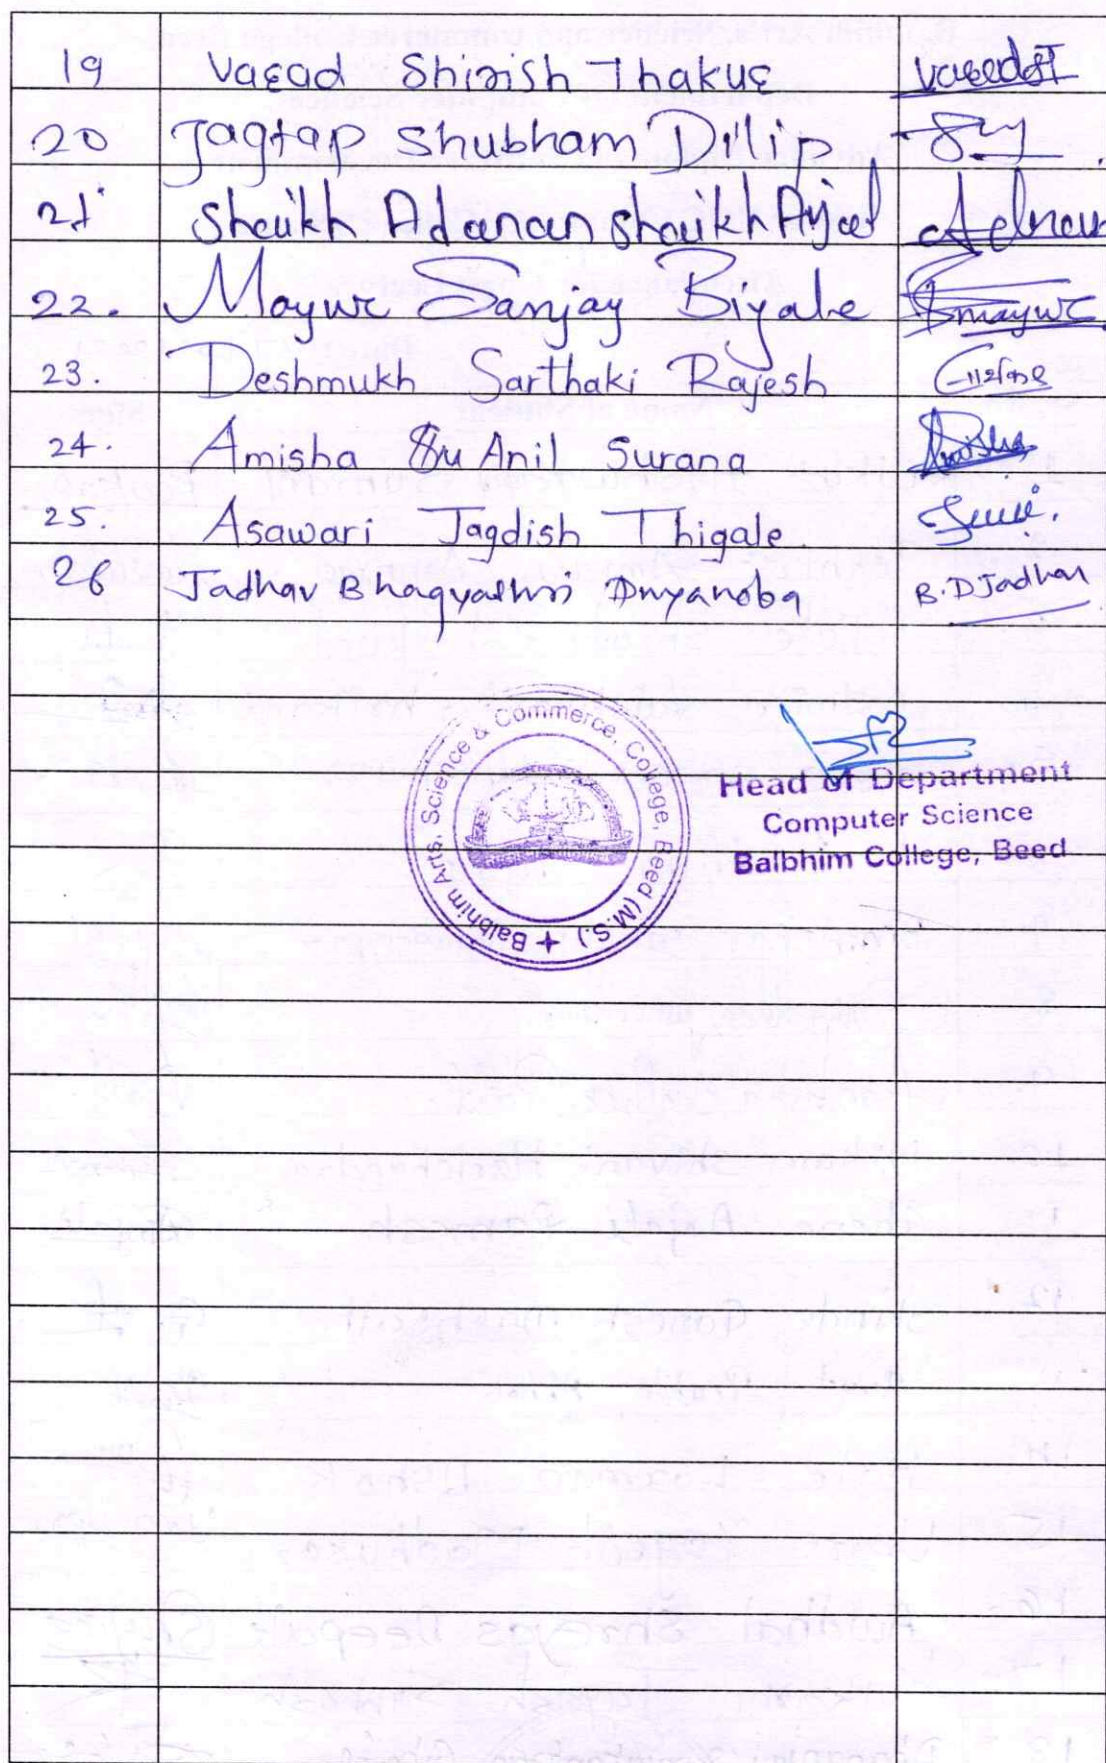 19 Varad Shirish Thakur
20 Jagtap Shubham Dilip
21 Shaikh Adanan Shaikh Ajad Adnan
22. Mayur Sanjay Biyale Mayur
23. Deshmukh Sarthaki Rajesh
24. Amisha Anil Surana
25. Asawari Jagdish Thigale
26 Jadhav Bhagyashri Dnyanoba B.D Jadhav
Balbhim Arts, Science & Commerce, College, Beed (M.S.)
Head of Department
Computer Science
Balbhim College, Beed